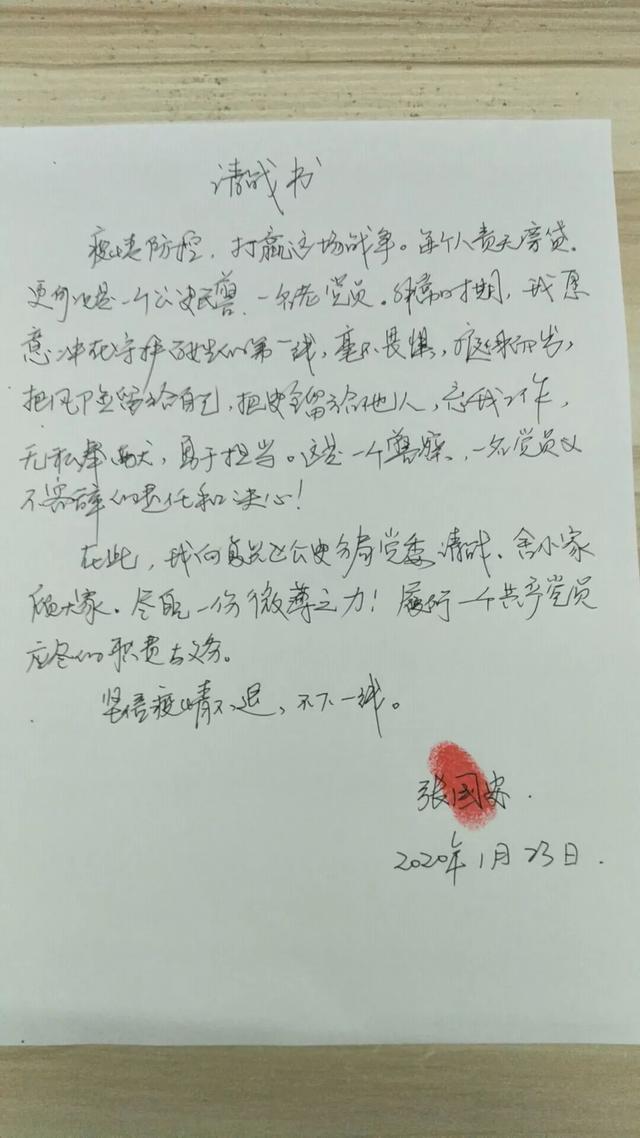 请战书
疫情防控，打赢这场战争。每个人责无旁贷.
更何况是一个公安民警、一名老党员。非常时期，我愿
意冲在守护百姓的第一线，毫不畏惧，挺身而出，
把风险留给自己，把安全留给他人，忘我工作，
无私奉献，勇于担当。这是一个警察、一名党员义
不容辞的责任和决心！
在此，我向公安分局党委请战、舍小家
顾大家.尽自己一份微薄之力！履行一个共产党员
应尽的职责与义务。
坚信疫情不退，不下一线。
张国安.
2020年1月23日.